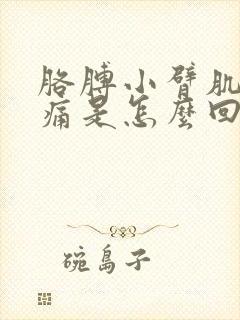 胳膊小臂肌
痛是怎麼回
碗島子